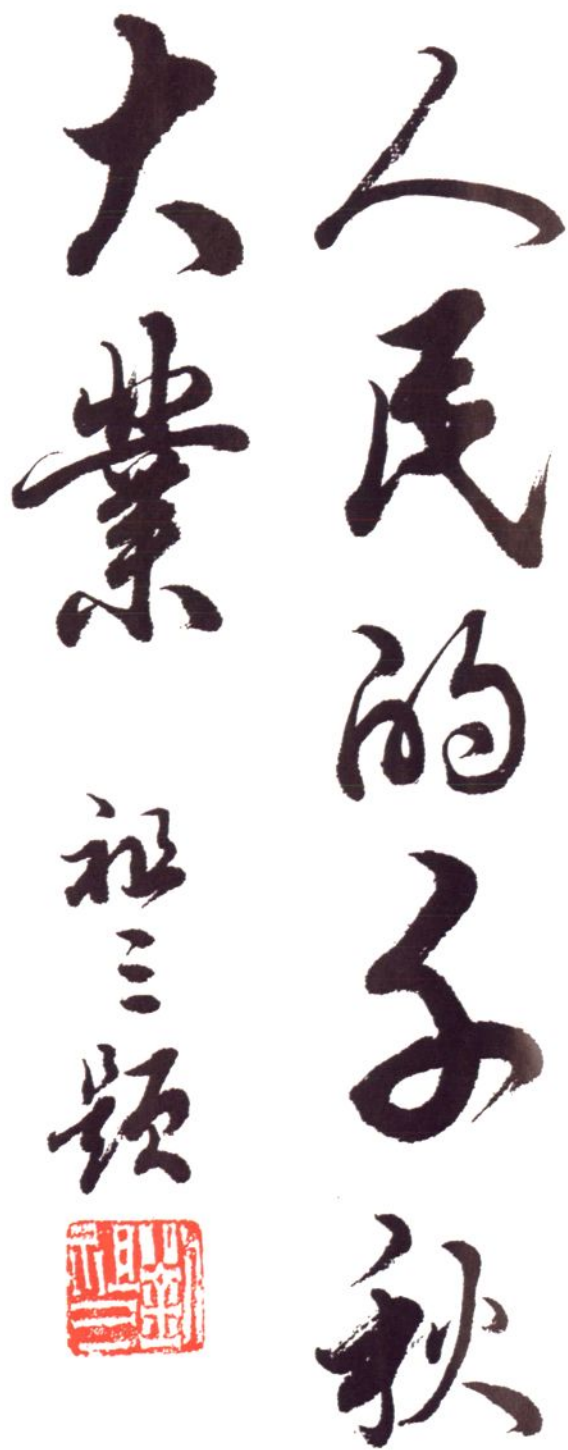 人民的千秋
大業
祖三題
劉祖三